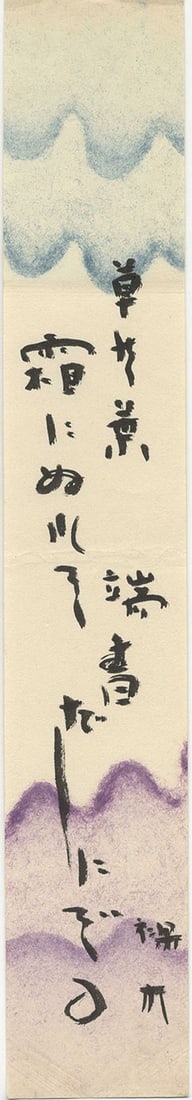 草 葉
霜にぬれて
端書だしにでる
裸木